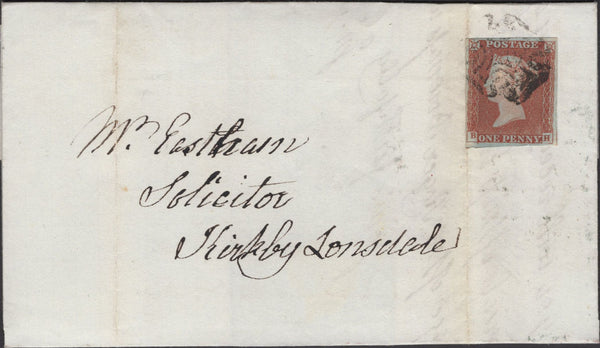 POSTAGE
ONE PENNY
B H
Mr Eastham
Solicitor
Kirkby Lonsdale